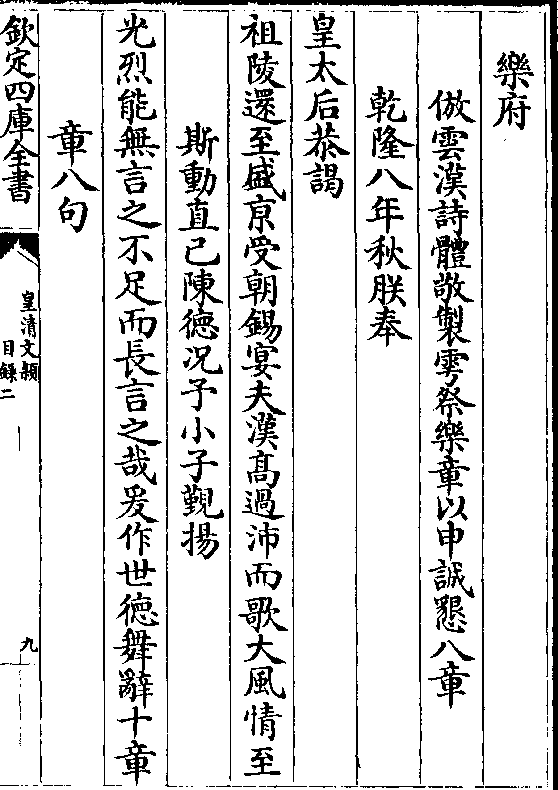 樂府
倣雲漢詩體敬製雩祭樂章以申誠懇八章
乾隆八年秋朕奉
皇太后恭謁
祖陵還至盛京受朝錫宴夫漢髙過沛而歌大風情至
斯動直己陳德况予小子覲揚
光烈能無言之不足而長言之哉爰作世德舞辭十章
章八句
欽定四庫全書
皇清文頴
目録二
九